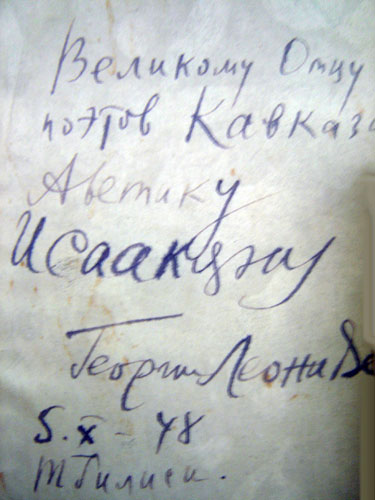 Великому Отцу
поэтов Кавказа
Аветику
Исаакяну
Георги Леонидзе
5.X – 48
Тбилиси.